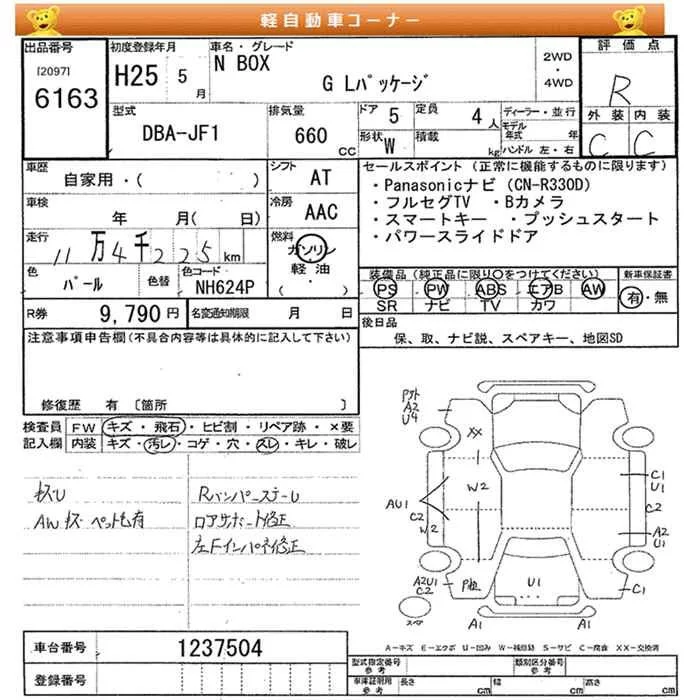 軽自動車コーナー
出品番号
[2097]
6163
初度登録年月
H25 5月
車名・グレード
N BOX
G Lパッケージ
2WD
・
4WD
評価点
R
外装 内装
C C
型式
DBA-JF1
排気量
660
CC
ドア
5
定員
4人
形状
W
積載
kg
ディーラー・並行
モデル年式 年
ハンドル 左・右
車歴
自家用・( )
シフト
AT
車検
年 月( 日)
冷房
AAC
走行
11万4千225km
燃料
ガソリン
軽油
( )
色
パール
色替
色コード
NH624P
セールスポイント (正常に機能するものに限ります)
・Panasonicナビ (CN-R330D)
・フルセグTV ・Bカメラ
・スマートキー ・プッシュスタート
・パワースライドドア
装備品 (純正品に限り〇をつけてください)
PS PW ABS エアB AW
SR ナビ TV カワ
新車保証書
有・無
R券
9,790円
名変通知期限 月 日
後日品
保、取、ナビ説、スペアキー、地図SD
注意事項申告欄 (不具合内容等は具体的に記入して下さい)
修復歴 有 〔箇所 〕
検査員記入欄
FW キズ・飛石・ヒビ割・リペア跡・×要
内装 キズ・汚レ・コゲ・穴・スレ・キレ・破レ
キズU
AWキズ・ペット毛有
RバンパーステーU
ロアサポート修正
左Fインパネ修正
A2
U4
XX
W2
AU1
C2
W2
A2U1
C2
U1
C1
U1
C2
A2
U1
C1
A1
A1
スペア
A-キズ E-エクボ U-凹み W-補修跡 S-サビ C-腐食 XX-交換済
車台番号
1237504
登録番号
型式指定番号
参考
類別区分番号
参考
車庫証明用
参考
長さ cm
幅 cm
高さ cm